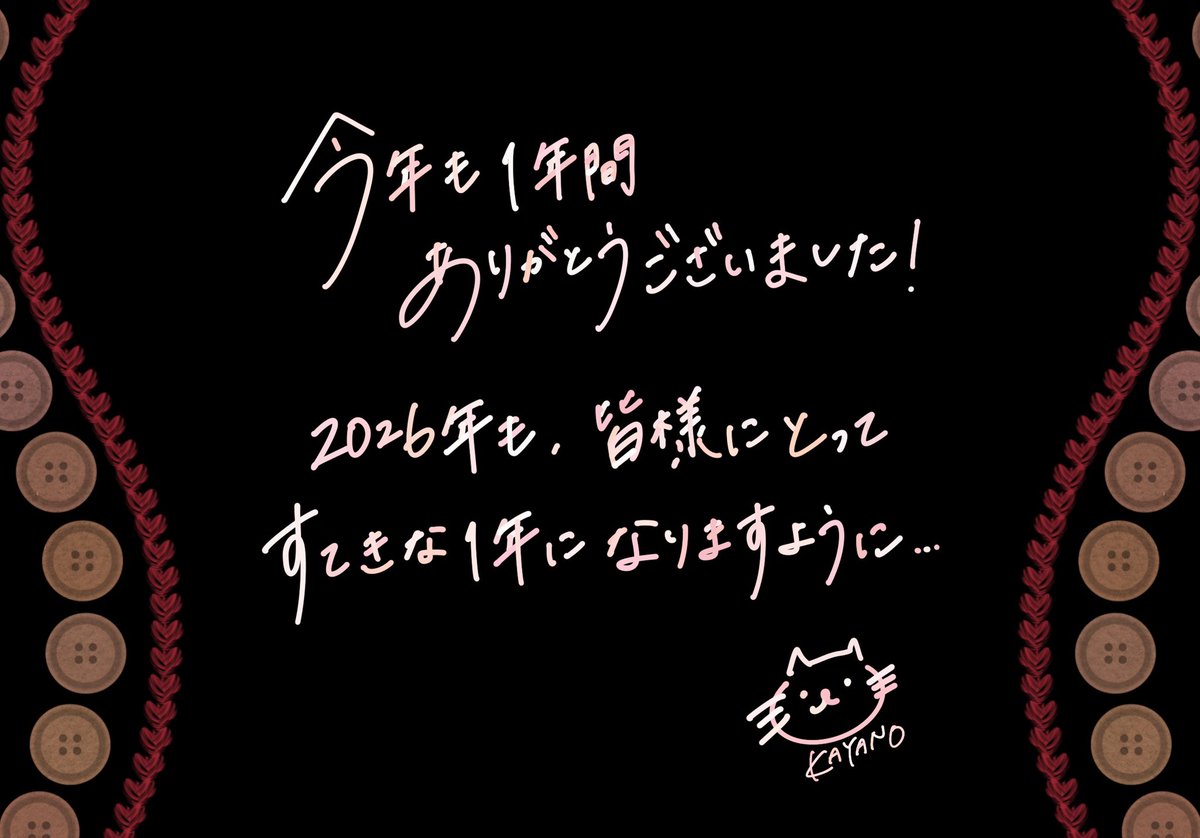 今年も1年間
ありがとうございました!
2026年も、皆様にとって
すてきな1年になりますように...
KAYANO